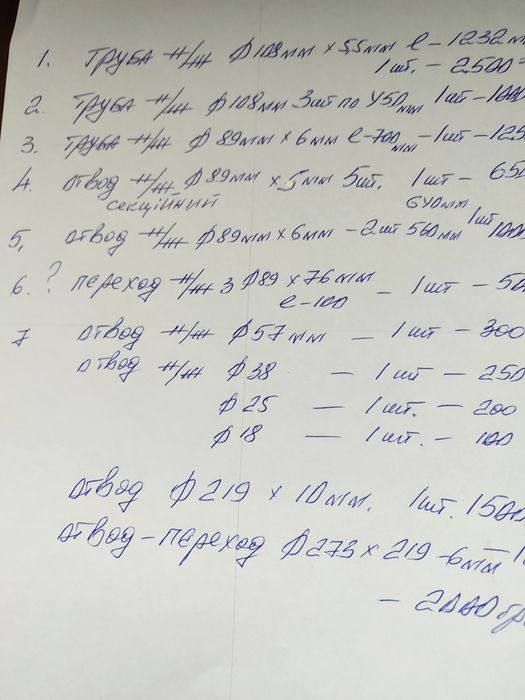 1. труба н/ж ф108мм х 5,5мм l-1232м
1шт. - 2500
2. труба н/ж ф108мм 3шт по 450мм 1шт-1000
3. труба н/ж ф89мм х 6мм l-700мм -1шт-125
4. отвод н/ж ф89мм х 5мм 5шт. 1шт - 650
секційний 640мм
5, отвод н/ж ф89мм х 6мм - 2шт 560мм 1шт 100
6. ? переход н/ж з ф89 х 76мм - 1шт - 50
l-100
7 отвод н/ж ф57мм - 1шт - 300
отвод н/ж ф38 - 1шт - 250
ф25 - 1шт. - 200
ф18 - 1шт. - 100
отвод ф219 х 10мм. 1шт. 1500
отвод-переход ф273х219-6мм -1
- 2000гр